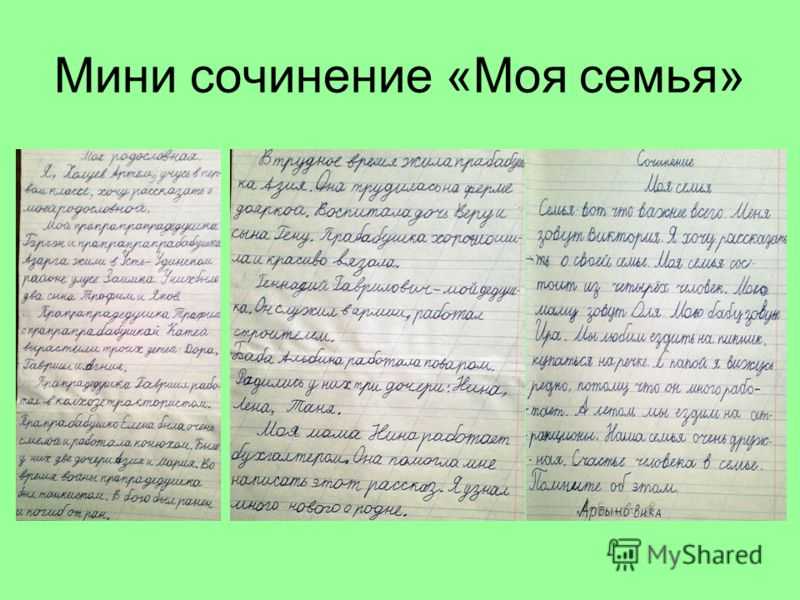 Мини сочинение «Моя семья»
Моя родословная.
Я, Холуев Артем, учусь в пер-
вом классе, хочу рассказать о
моей родословной.
Мой прапрапрапрадедушка
и прапрапрапрабабушка
Азарга жили в Усть-Удинском
районе улусе Заимка. У них было
два сына Трофим и Яков.
Прапрапрадедушка Трофим
с прапрапрабабушкой Катей
вырастили троих детей: Дора,
Гавриил и
Прапрадедушка Гавриил рабо-
тал в колхозе трактористом.
Прапрабабушка Елена была очень
смелой и работала конюхом. Были
у них две дочери Азия и Мария. Во
время войны прапрадедушка
был танкистом. В бою был ранен
и погиб от ран.
В трудное время жила прабабуш-
ка Азия. Она трудилась на ферме
дояркой. Воспитала дочь Веру и
сына Гену. Прабабушка хорошо ши-
ла и красиво вязала.
Геннадий Гаврилович - мой дедуш-
ка. Он служил в армии, работал
строителем.
Баба Альбина работала поваром.
Радились у них три дочери: Нина,
Лена, Таня.
Моя мама Нина работает
бухгалтером. Она помогла мне
написать этот рассказ. Я узнал
много нового о родне.
Сочинение
Моя семья
Семья вот что важнее всего. Меня
зовут Виктория. Я хочу рассказать
ть о своей семье. Моя семья сос-
тоит из четырёх человек. Мою
маму зовут Оля. Мою бабу зовут
Ира. Мы любим ездить на пикник,
купаться на речке. А папой я вижусь
редко, потому что он много рабо-
тает. А летом мы ездим на ат-
ракционы. Наша семья очень друж-
ная. Счастье человека в семье.
Помните об этом.
Арбыно Вика
MyShared